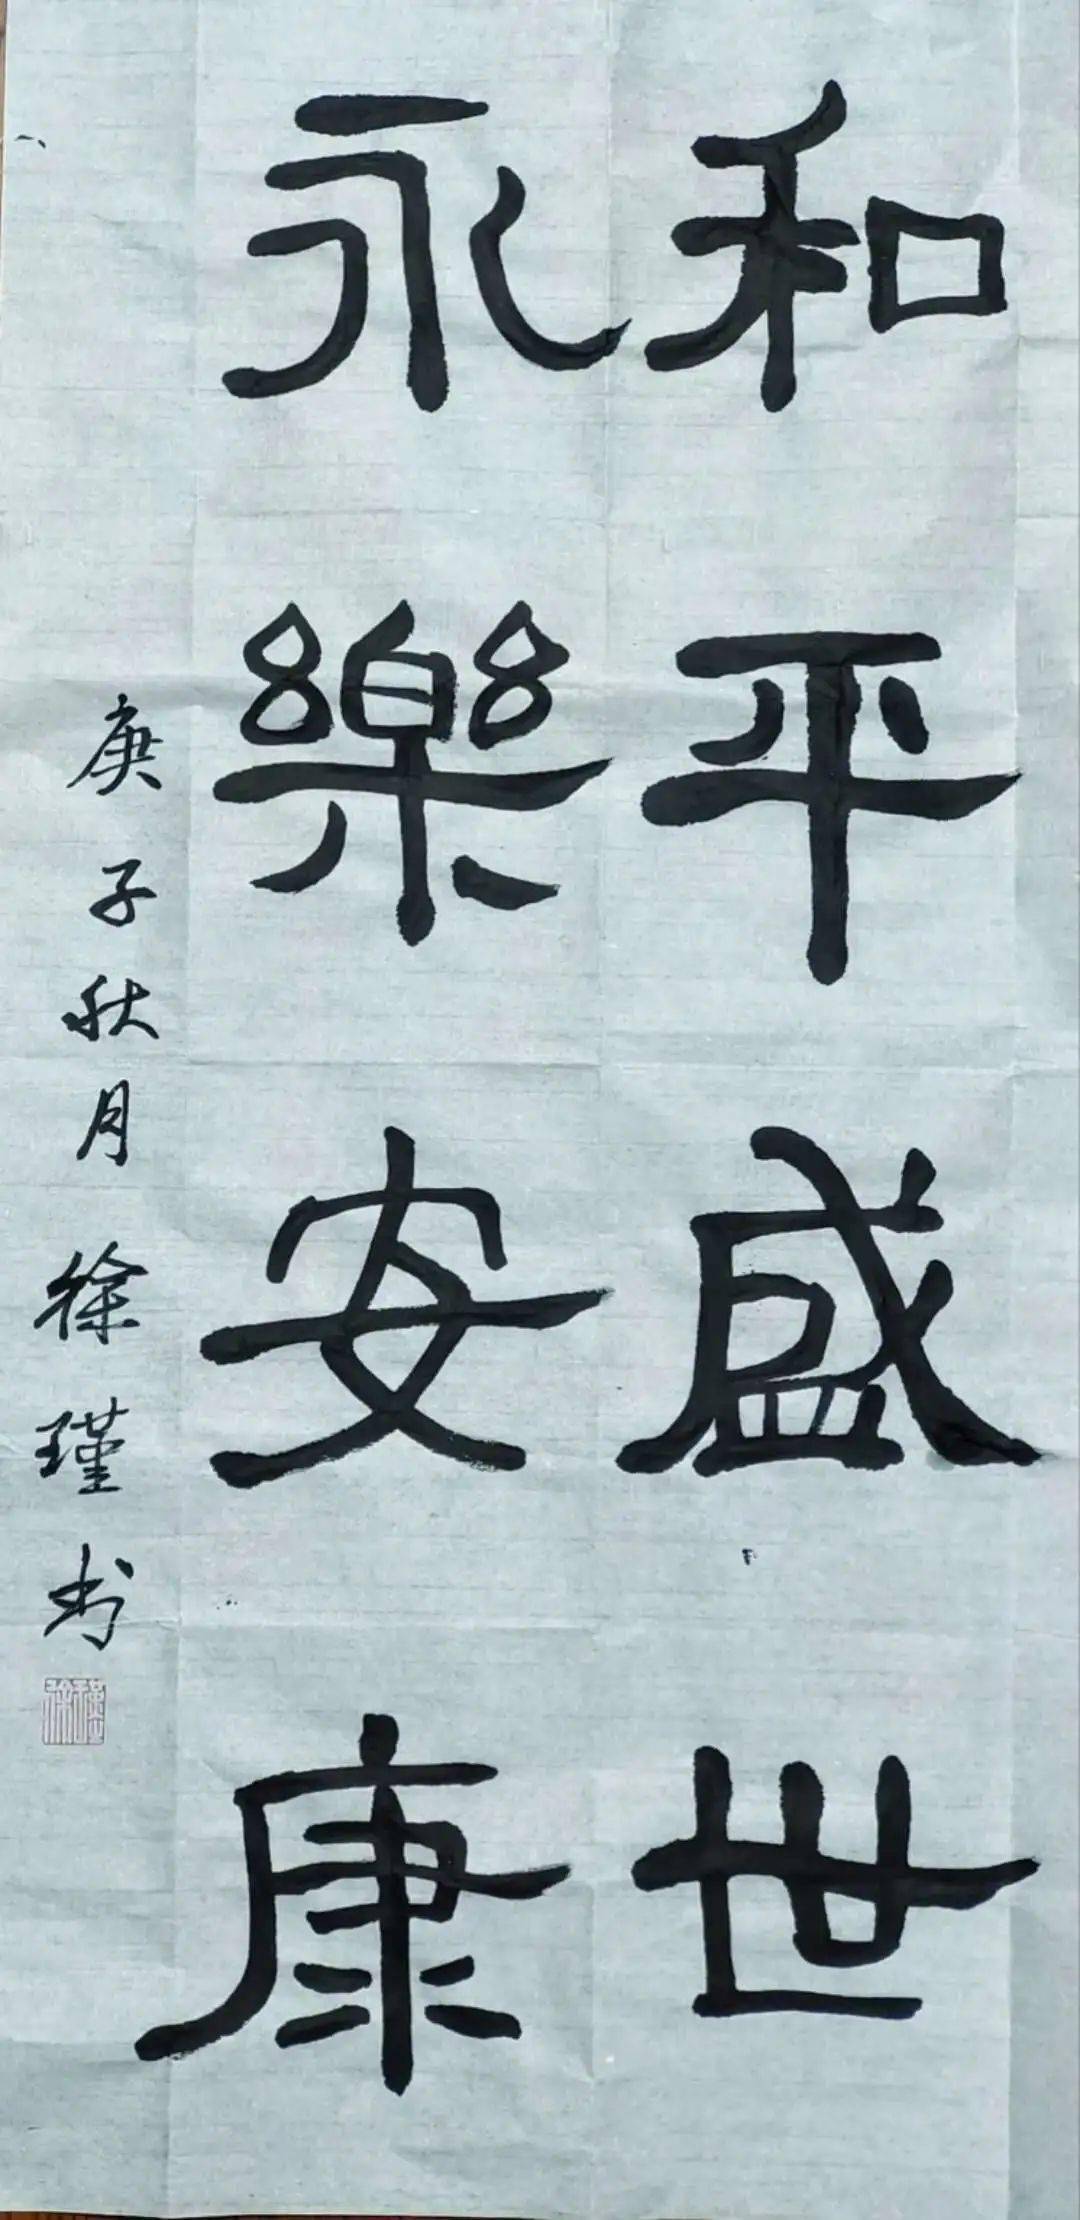 和平盛世
永樂安康
庚子秋月徐瑾书